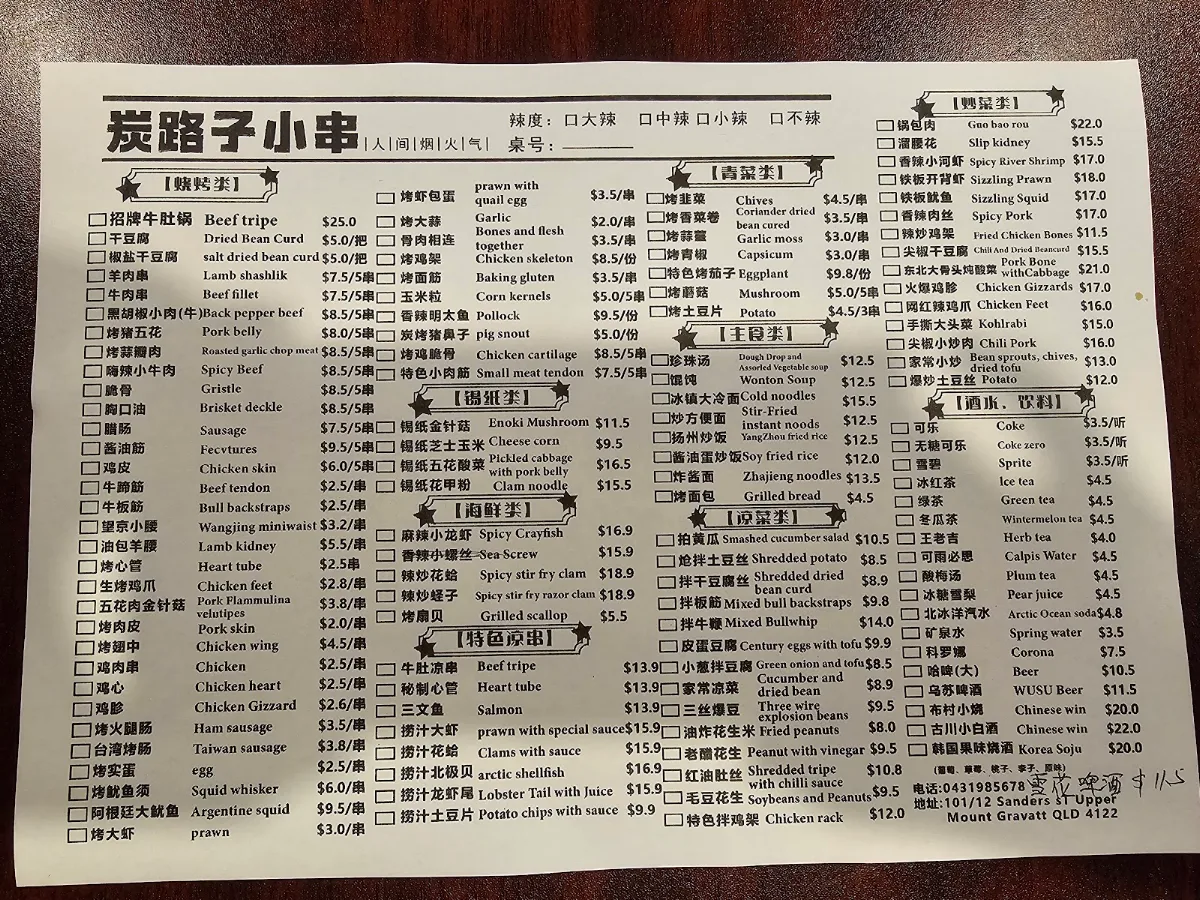 炭路子小串 |人|间|烟|火|气|
辣度: 口大辣 口中辣 口小辣 口不辣
桌号:
【烧烤类】
招牌牛肚锅 Beef tripe $25.0
干豆腐 Dried Bean Curd $5.0/把
椒盐干豆腐 salt dried bean curd $5.0/把
羊肉串 Lamb shashlik $7.5/5串
牛肉串 Beef fillet $7.5/5串
黑胡椒小肉(牛) Back pepper beef $8.5/5串
烤猪五花 Pork belly $8.0/5串
烤蒜瓣肉 Roasted garlic chop meat $8.5/5串
嗨辣小牛肉 Spicy Beef $8.5/5串
脆骨 Gristle $8.5/5串
胸口油 Brisket deckle $8.5/5串
腊肠 Sausage $7.5/5串
酱油筋 Fecvtures $9.5/5串
鸡皮 Chicken skin $6.0/5串
牛蹄筋 Beef tendon $2.5/串
牛板筋 Bull backstraps $2.5/串
望京小腰 Wangjing miniwaist $3.2/串
油包羊腰 Lamb kidney $5.5/串
烤心管 Heart tube $2.5串
生烤鸡爪 Chicken feet $2.8/串
五花肉金针菇 Pork Flammulina velutipes $3.8/串
烤肉皮 Pork skin $2.0/串
烤翅中 Chicken wing $4.5/串
鸡肉串 Chicken $2.5/串
鸡心 Chicken heart $2.5/串
鸡胗 Chicken Gizzard $2.6/串
烤火腿肠 Ham sausage $3.5/串
台湾烤肠 Taiwan sausage $3.8/串
烤实蛋 egg $2.5/串
烤鱿鱼须 Squid whisker $6.0/串
阿根廷大鱿鱼 Argentine squid $9.5/串
烤大虾 prawn $3.0/串
烤虾包蛋 prawn with quail egg $3.5/串
烤大蒜 Garlic $2.0/串
骨肉相连 Bones and flesh together $3.5/串
烤鸡架 Chicken skeleton $8.5/份
烤面筋 Baking gluten $3.5/串
玉米粒 Corn kernels $5.0/5串
香辣明太鱼 Pollock $9.5/份
炭烤猪鼻子 pig snout $5.0/份
烤鸡脆骨 Chicken cartilage $8.5/5串
特色小肉筋 Small meat tendon $7.5/5串
【锡纸类】
锡纸金针菇 Enoki Mushroom $11.5
锡纸芝士玉米 Cheese corn $9.5
锡纸五花酸菜 Pickled cabbage with pork belly $16.5
锡纸花甲粉 Clam noodle $15.5
【海鲜类】
麻辣小龙虾 Spicy Crayfish $16.9
香辣小螺丝 Sea Screw $15.9
辣炒花蛤 Spicy stir fry clam $18.9
辣炒蛏子 Spicy stir fry razor clam $18.9
烤扇贝 Grilled scallop $5.5
【特色凉串】
牛肚凉串 Beef tripe $13.9
秘制心管 Heart tube $13.9
三文鱼 Salmon $13.9
捞汁大虾 prawn with special sauce $15.9
捞汁花蛤 Clams with sauce $15.9
捞汁北极贝 arctic shellfish $16.9
捞汁龙虾尾 Lobster Tail with Juice $15.9
捞汁土豆片 Potato chips with sauce $9.9
【青菜类】
烤韭菜 Chives $4.5/串
烤香菜卷 Coriander dried bean cured $3.5/串
烤蒜薹 Garlic moss $3.0/串
烤青椒 Capsicum $3.0/串
特色烤茄子 Eggplant $9.8/份
烤蘑菇 Mushroom $5.0/5串
烤土豆片 Potato $4.5/3串
【主食类】
珍珠汤 Dough Drop and Assorted Vegetable soup $12.5
馄饨 Wonton Soup $12.5
冰镇大冷面 Cold noodles $15.5
炒方便面 Stir-Fried instant noods $12.5
扬州炒饭 YangZhou fried rice $12.5
酱油蛋炒饭 Soy fried rice $12.0
炸酱面 Zhajieng noodles $13.5
烤面包 Grilled bread $4.5
【凉菜类】
拍黄瓜 Smashed cucumber salad $10.5
炝拌土豆丝 Shredded potato $8.5
拌干豆腐丝 Shredded dried bean curd $8.9
拌板筋 Mixed bull backstraps $9.8
拌牛鞭 Mixed Bullwhip $14.0
皮蛋豆腐 Century eggs with tofu $9.9
小葱拌豆腐 Green onion and tofu $8.5
家常凉菜 Cucumber and dried bean $8.9
三丝爆豆 Three wire explosion beans $9.5
油炸花生米 Fried peanuts $8.0
老醋花生 Peanut with vinegar $9.5
红油肚丝 Shredded tripe with chilli sauce $10.8
毛豆花生 Soybeans and Peanuts $9.5
特色拌鸡架 Chicken rack $12.0
【炒菜类】
锅包肉 Guo bao rou $22.0
溜腰花 Slip kidney $15.5
香辣小河虾 Spicy River Shrimp $17.0
铁板开背虾 Sizzling Prawn $18.0
铁板鱿鱼 Sizzling Squid $17.0
香辣肉丝 Spicy Pork $17.0
辣炒鸡架 Fried Chicken Bones $11.5
尖椒干豆腐 Chili And Dried Beancurd $15.5
东北大骨头炖酸菜 Pork Bone withCabbage $21.0
火爆鸡胗 Chicken Gizzards $17.0
网红辣鸡爪 Chicken Feet $16.0
手撕大头菜 Kohlrabi $15.0
尖椒小炒肉 Chili Pork $16.0
家常小炒 Bean sprouts, chives, dried tofu $13.0
爆炒土豆丝 Potato $12.0
【酒水、饮料】
可乐 Coke $3.5/听
无糖可乐 Coke zero $3.5/听
雪碧 Sprite $3.5/听
冰红茶 Ice tea $4.5
绿茶 Green tea $4.5
冬瓜茶 Wintermelon tea $4.5
王老吉 Herb tea $4.0
可雨必思 Calpis Water $4.5
酸梅汤 Plum tea $4.5
冰糖雪梨 Pear juice $4.5
北冰洋汽水 Arctic Ocean soda $4.8
矿泉水 Spring water $3.5
科罗娜 Corona $7.5
哈啤(大) Beer $10.5
乌苏啤酒 WUSU Beer $11.5
布村小烧 Chinese win $20.0
古川小白酒 Chinese win $22.0
韩国果味烧酒 Korea Soju $20.0
(葡萄、草莓、桃子、李子、原味)
雪花啤酒 $11.5
电话:0431985678
地址:101/12 Sanders sT Upper
Mount Gravatt QLD 4122